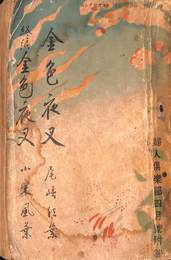 金色夜叉
尾崎紅葉
終篇金色夜叉
小栗風葉
婦人倶樂部四月號附録